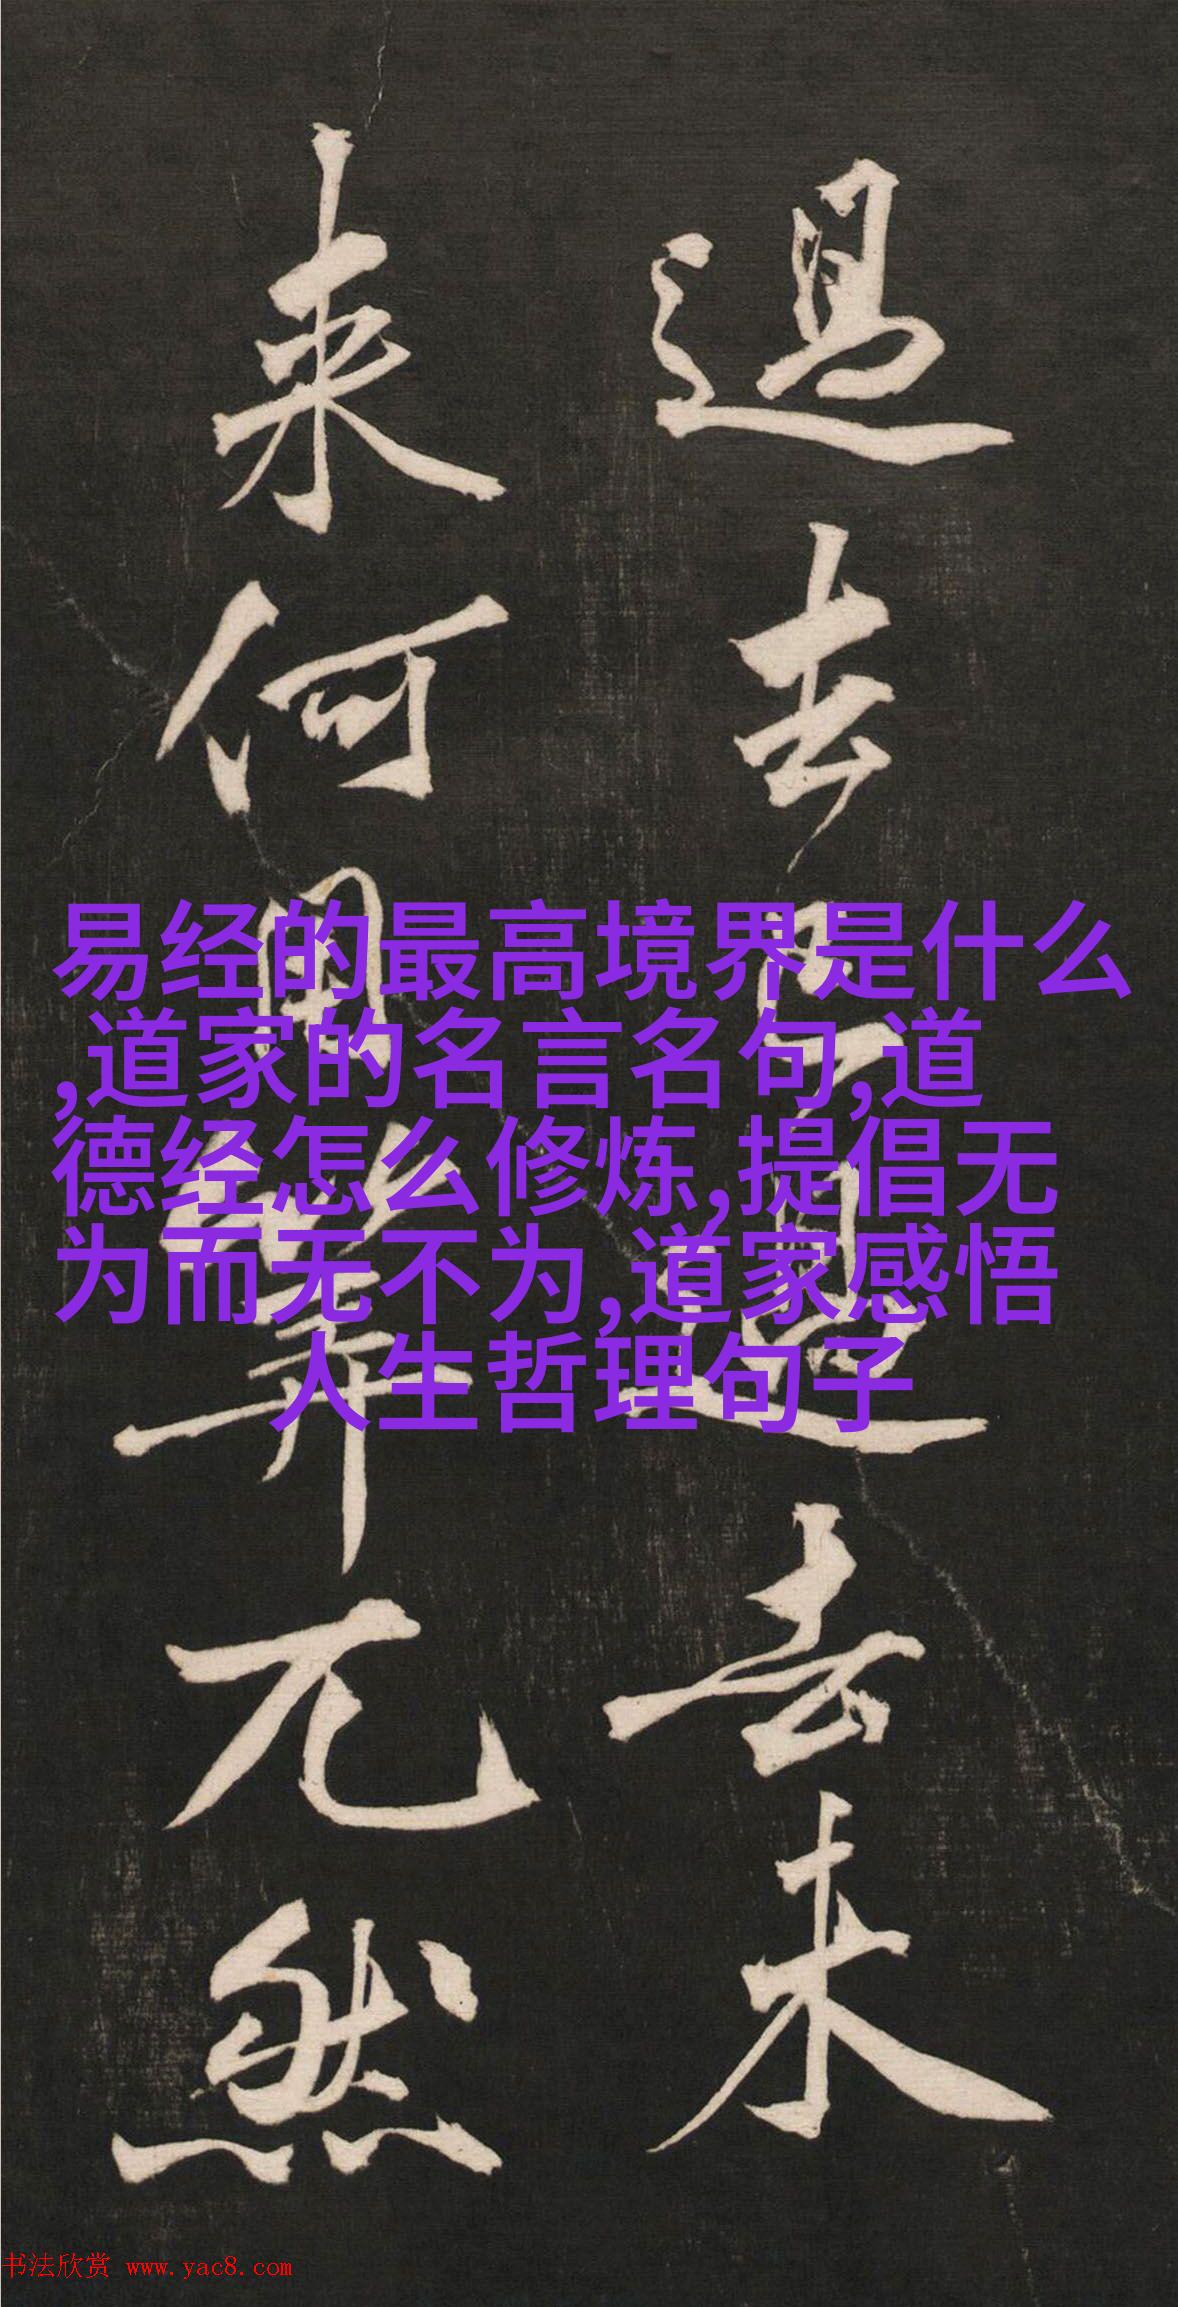 過去已過去未
来何用筭兀然
易经的最高境界是什么
,道家的名言名句,道
德经怎么修炼,提倡无
为而无不为,道家感悟
人生哲理句子
书法欣赏 www.yac8.com